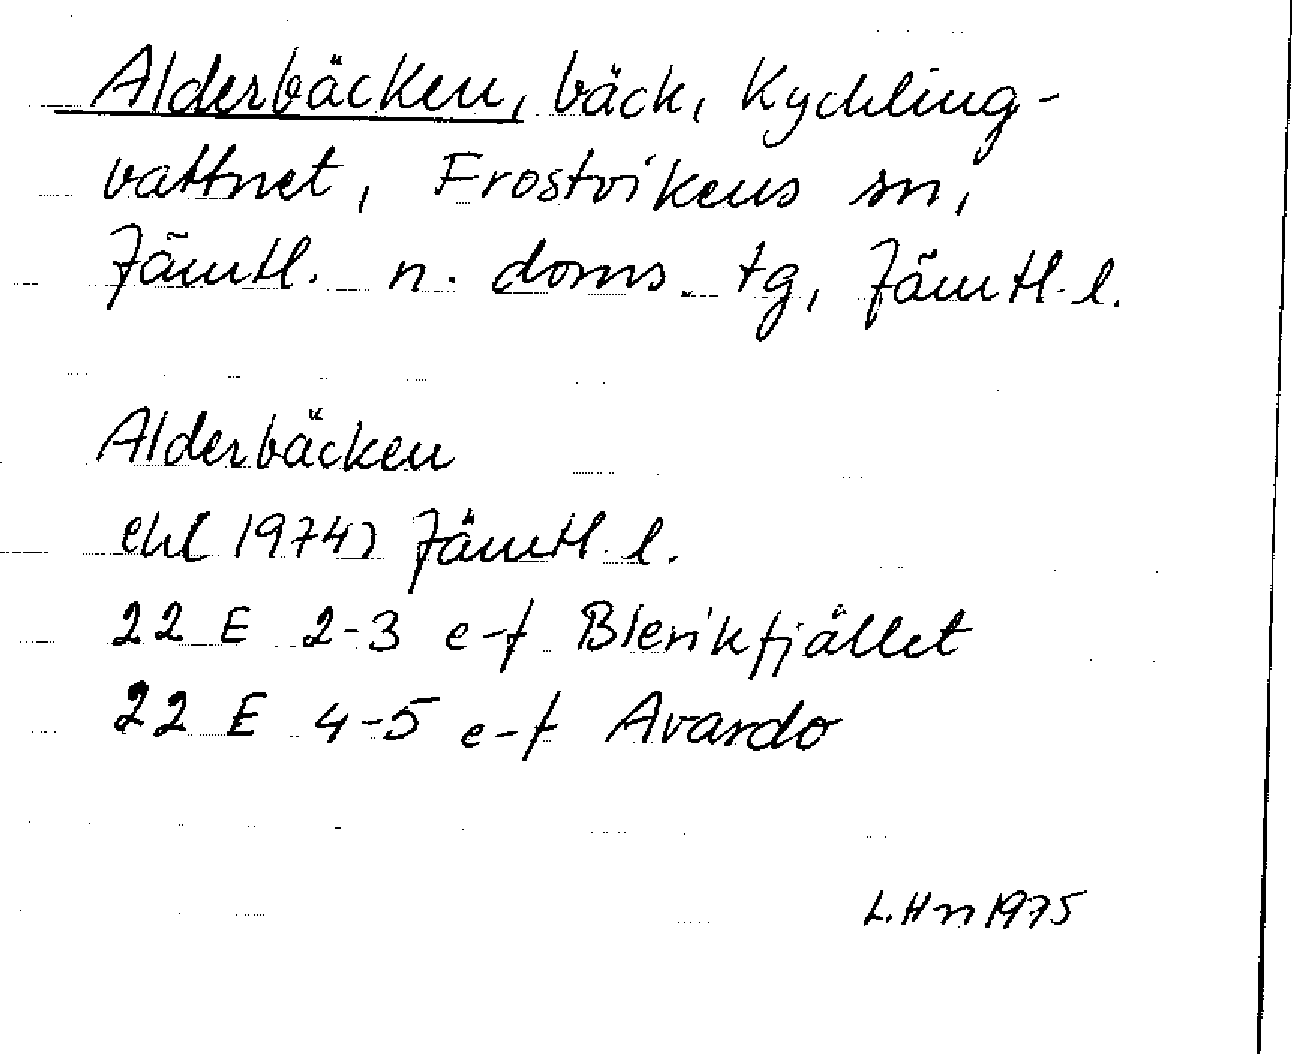 Alderbäcken, bäck, Kychling-
vattnet, Frostvikens sn,
Jämtl. n. doms. tg, Jämtl. l.
Alderbäcken
ekl 1974) Jämtl. l.
22 E 2-3 e-f Blerikfjället
22 E 4-5 e-f Avardo
L. Hn 1975